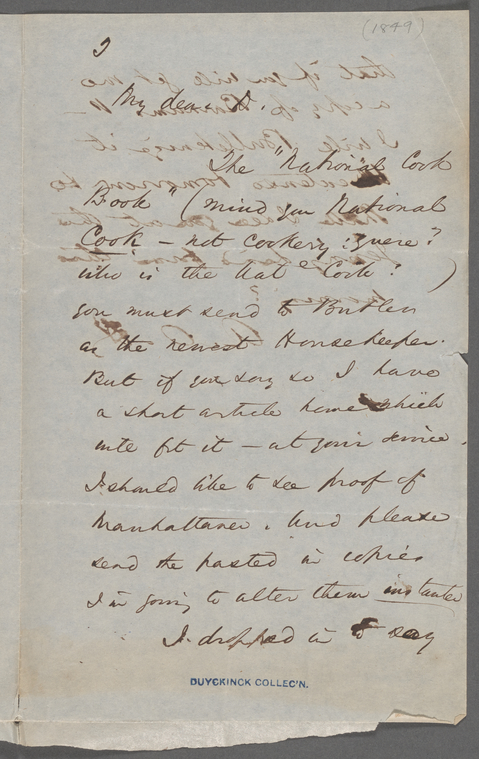 (1849)
2
My dear D.
The "National Cook
Book" (mind you National
Cook – not cookery: quere?
who is the Nat^e Cook? )
you must send to Butler
as the newest Housekeeper.
But if you say so I have
a short article home which
will fit it – at your service.
I should like to see proof of
Manhattaner. And please
send the pasted in copies
I'm going to alter them instanter
I dropped in to say
DUYCKINCK COLLEC'N.